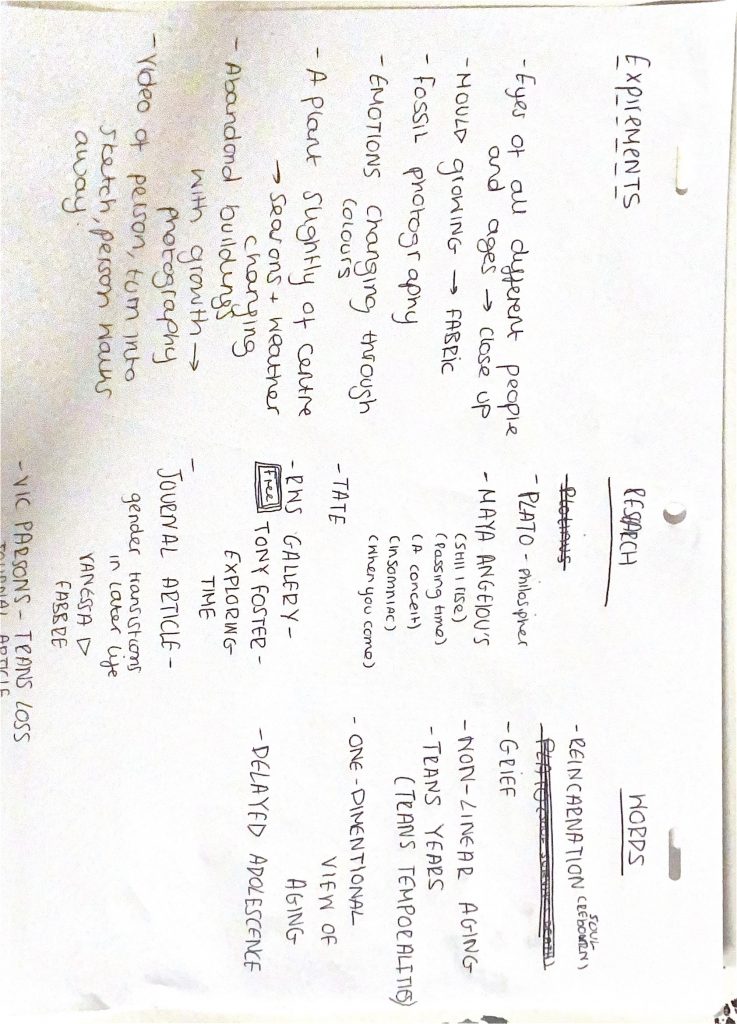 EXPIREMENTS
- Eyes of all different people
and ages → close up
- MOULD growing → FABRIC
- FOSSIL photography
- EMOTIONS changing through
colours
- A plant slightly of centre
→ seasons + weather
changing
- Abandond buildings
with growth →
photography
- Video of person, turn into
sketch, person walks
away.
RESEARCH
- PLATO - philosipher
- MAYA ANGELOU'S
(Still I rise)
(Passing time)
(A conceit)
(insomniac)
(When you come)
- TATE
- RWS GALLERY -
Free TONY FOSTER -
EXPLORING
TIME
- JOURNAL ARTICLE -
gender transistions
in later life
VANESSA D
FABBRE
- VIC PARSONS - TRANS LOSS
JOURNAL ARTICLE
WORDS
- REINCARNATION (REBOURN)
SOUL
- GRIEF
- NON-LINEAR AGING
- TRANS YEARS
(TRANS TEMPORALITIES)
- ONE-DIMENTIONAL
VIEW OF
AGING
- DELAYED ADOLESCENCE